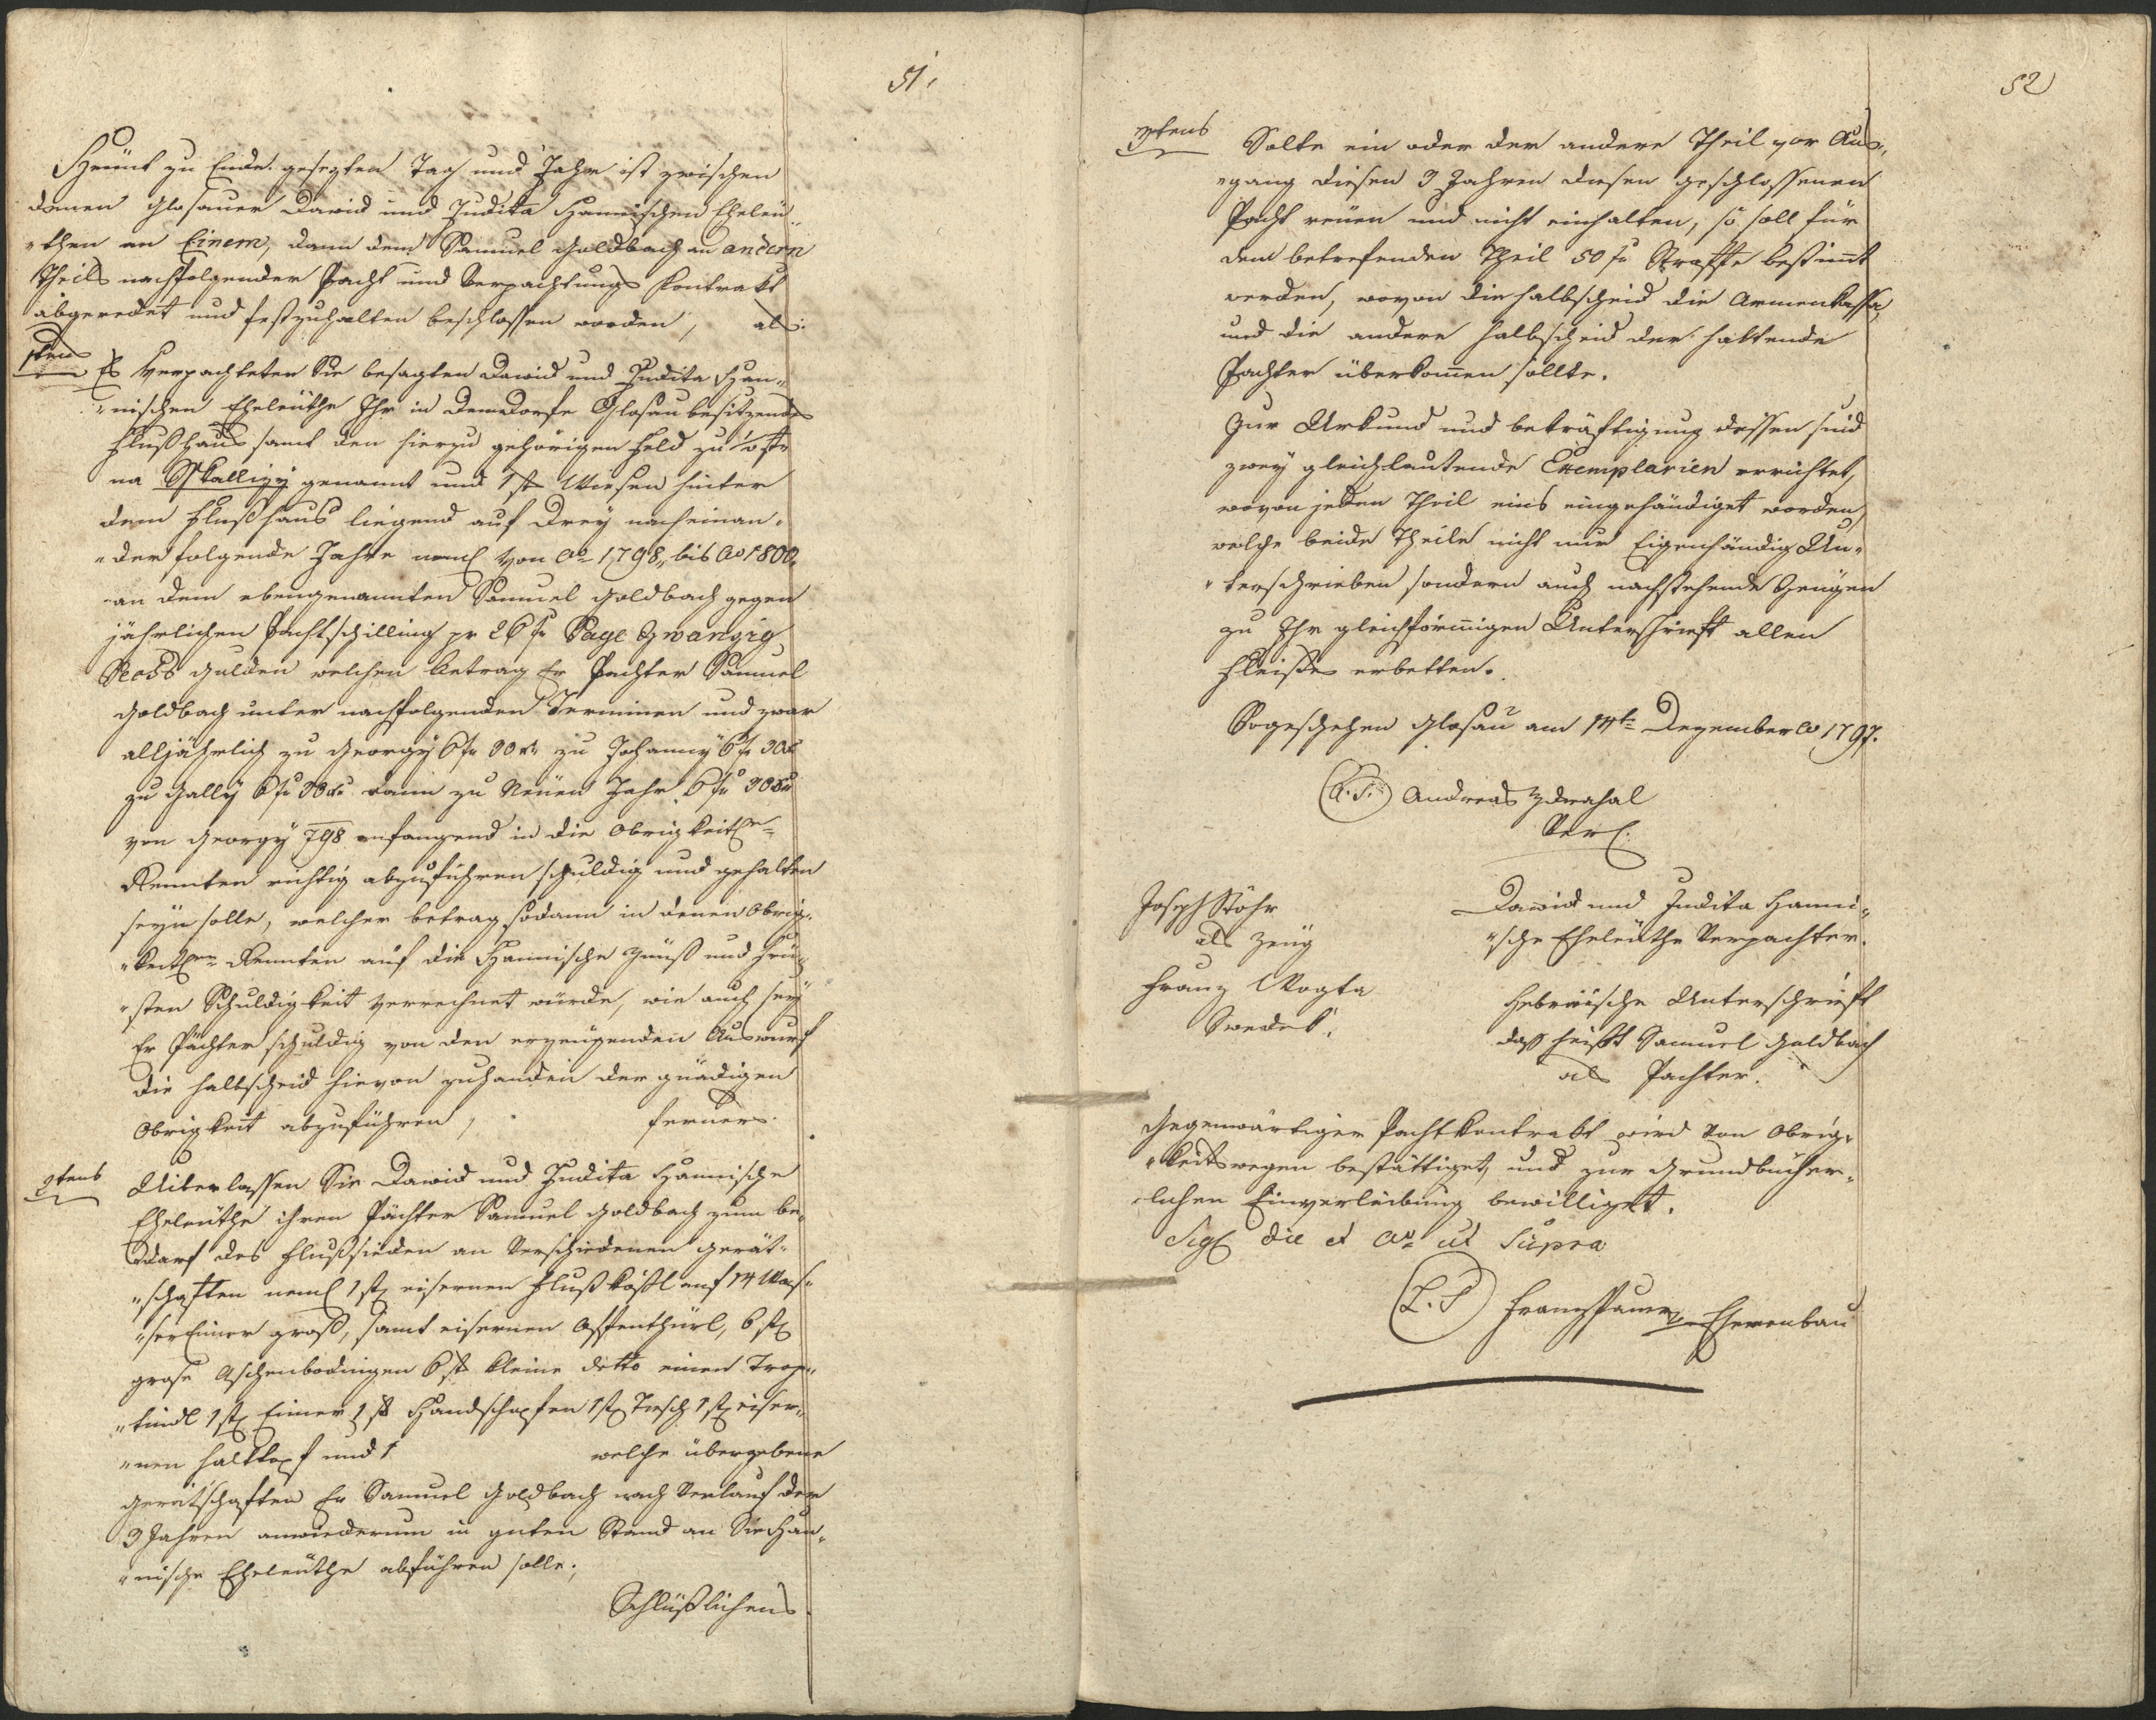 51.
Heunt zu Ende gesezten Tag und Jahr ist zwischen
denen Glosauer David und Judita Hannischen Eheleü„
„then an Einem, dann dem Samuel Goldbach an andern
Theils nachfolgender Pacht und Verpachtungs Kontrakt
abgeredet und festzuhalten beschlossen worden, als:
1tens Es verpachteten Sie besagten David und Judita Han„
„nischen Eheleüthe Ihr in dem Dorfe Glosau besitzendes
Flußhaus samt den hierzu gehörigen Feld zu
na Skallizy genannt und 1 st Wiesen hinter
dem Flußhaus liegend auf Drey nacheinan„
„der folgende Jahre neml von Ao 1798, bis Ao 1800
an dem ebengenannten Samuel Goldbach gegen
jährlichen Pachtschilling pr 26 fr Sage Zwanzig
Sechs Gulden welchen Betrag Er Pachter Samuel
Goldbach unter nachfolgenden Terminen und zwar
alljährlich zu Georgy 6 fr 30 xr zu Johanny 6 fr 30 xr
zu Gally 6 fr 30 xr dann zu Neüen Jahr 6 fr 30 xr
von Georgy 798 anfangend in die Obrigkeitl
Rennten richtig abzuführen schuldig und gehalten
seyn solle, welcher betrag sodann in denen Obrig„
„keitl Rennten auf die Hannische Zünß und
Schuldigkeit verrechnet würde, wie auch sey
Er Pächter schuldig von den erzeügenden Auswurf
die halbscheid hievon zuhanden der gnädigen
Obrigkeit abzuführen, ferner
2tens Uiberlassen Sie David und Judita Hannische
Eheleüthe ihren Pächter Samuel Goldbach zum be„
darf des Flußsieden an Verschiedenen Gerät„
„schaften neml 1 st eisernen Flußkößl auf 14 Was„
„ser Eimer groß, samt eisernen Offenthürl, 6 st
große Aschenbodingen 6 st kleine detto einen
1 st Eimer 1 st Handschapfen 1 st Tisch 1 st eiser„
„nen und 1 welche übergebene
Gerätschaften Er Samuel Goldbach nach Verlauf der
3 Jahren anwiederum in guten Stand an Sie Han„
„nische Eheleüthe abführen solle;
Schlüßlichens
52
3tens Solte ein oder der andere Theil vor Aus„
„gang diesen 3 Jahren diesen geschlossenen
Pacht reüen und nicht einhalten, so soll für
den betrefenden Theil 50 fr Straffe bestimmt
werden, wovon die halbscheid die Armenkassa,
und die andere halbscheid der haltende
Pachter überkommen sollte.
Zur Urkund und bekräftigung dessen sind
zwey gleichlautende Exemplarien errichtet,
wovon jeden Theil eins eingehändiget worden,
welche beide Theile nicht nur Eigenhändig Un„
„terschrieben sondern auch nachstehende Zeugen
zu Ihr gleichförmigen Unterschrieft allen
Fleißes erbetten.
So geschehen Glosau am 14t Dezember Ao 1797.
(L.S.) Andreas Zdrahal
Verl.
Joseph Stöhr
als Zeüg
Franz Wogta
Swedek.
David und Judita Hanni„
„sche Eheleüthe Verpachter.
Hebräische Unterschrieft
daß heißt Samuel Goldbach
als Pachter.
Gegenwärtiger Pachtkontrakt wird von Obrig„
„keitswegen bestättiget, und zur Grundbücher„
„lichen Einverleibung bewilliget.
Sigl die et Ao ut Supra
(L.S) Franz v Ehrenbau